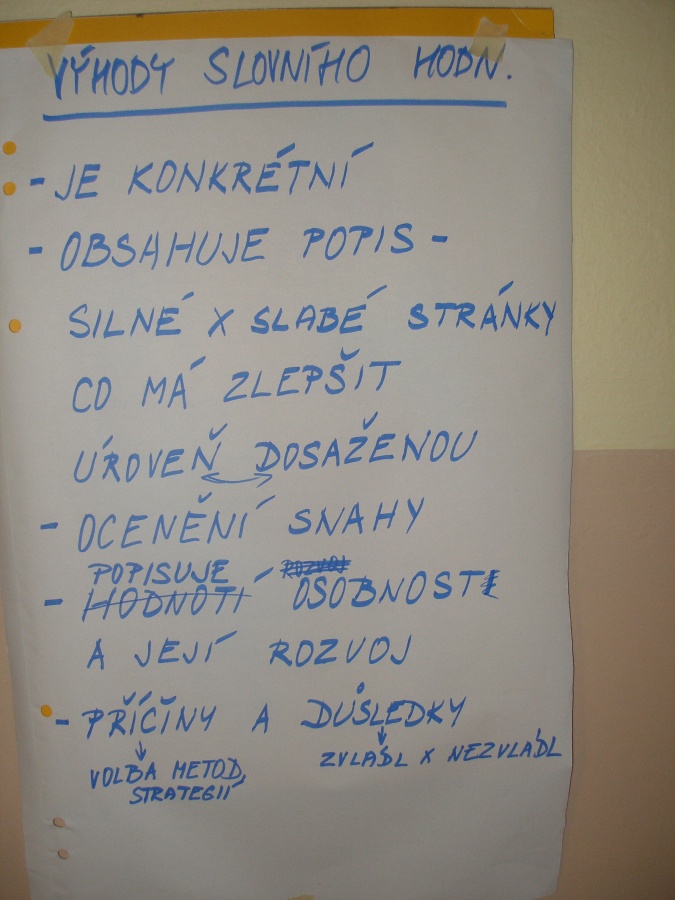 VÝHODY SLOVNÍHO HODN.
- JE KONKRÉTNÍ
- OBSAHUJE POPIS -
SILNÉ X SLABÉ STRÁNKY
CO MÁ ZLEPŠIT
ÚROVEŇ DOSAŽENOU
- OCENĚNÍ SNAHY
POPISUJE ROZVOJ
- HODNOTÍ OSOBNOST
A JEJÍ ROZVOJ
- PŘÍČINY A DŮSLEDKY
VOLBA METOD, ZVLÁDL X NEZVLÁDL
STRATEGIÍ